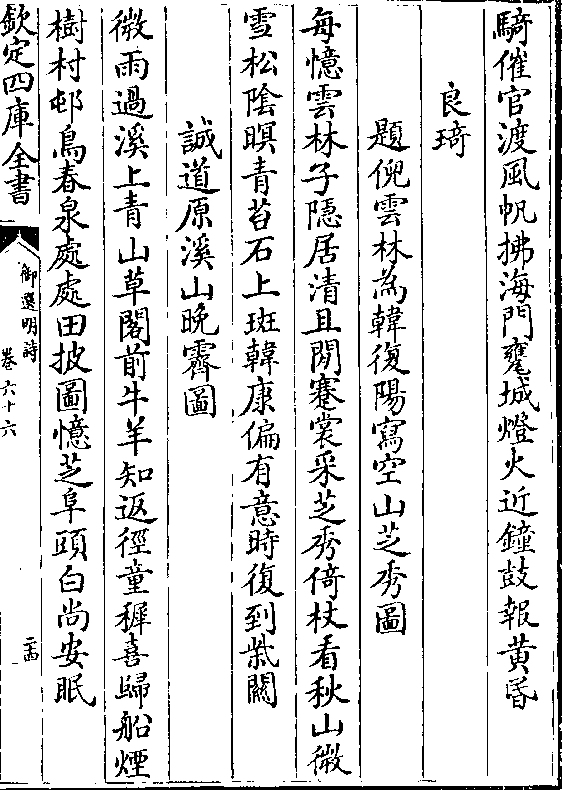 騎催官渡風帆拂海門甕城燈火近鐘鼓報黄昏
良琦
題倪雲林為韓復陽寫空山芝秀圖
每憶雲林子隠居清且閒蹇裳采芝秀倚杖看秋山微
雪松陰暝青苔石上斑韓康偏有意時復到紫關
誠道原溪山晚霽圖
微雨過溪上青山草閣前牛羊知返徑童穉喜歸船煙
樹村邨鳥春泉處處田披圖憶芝阜頭白尚安眠
欽定四庫全書
御選明詩
卷六十六
二十四